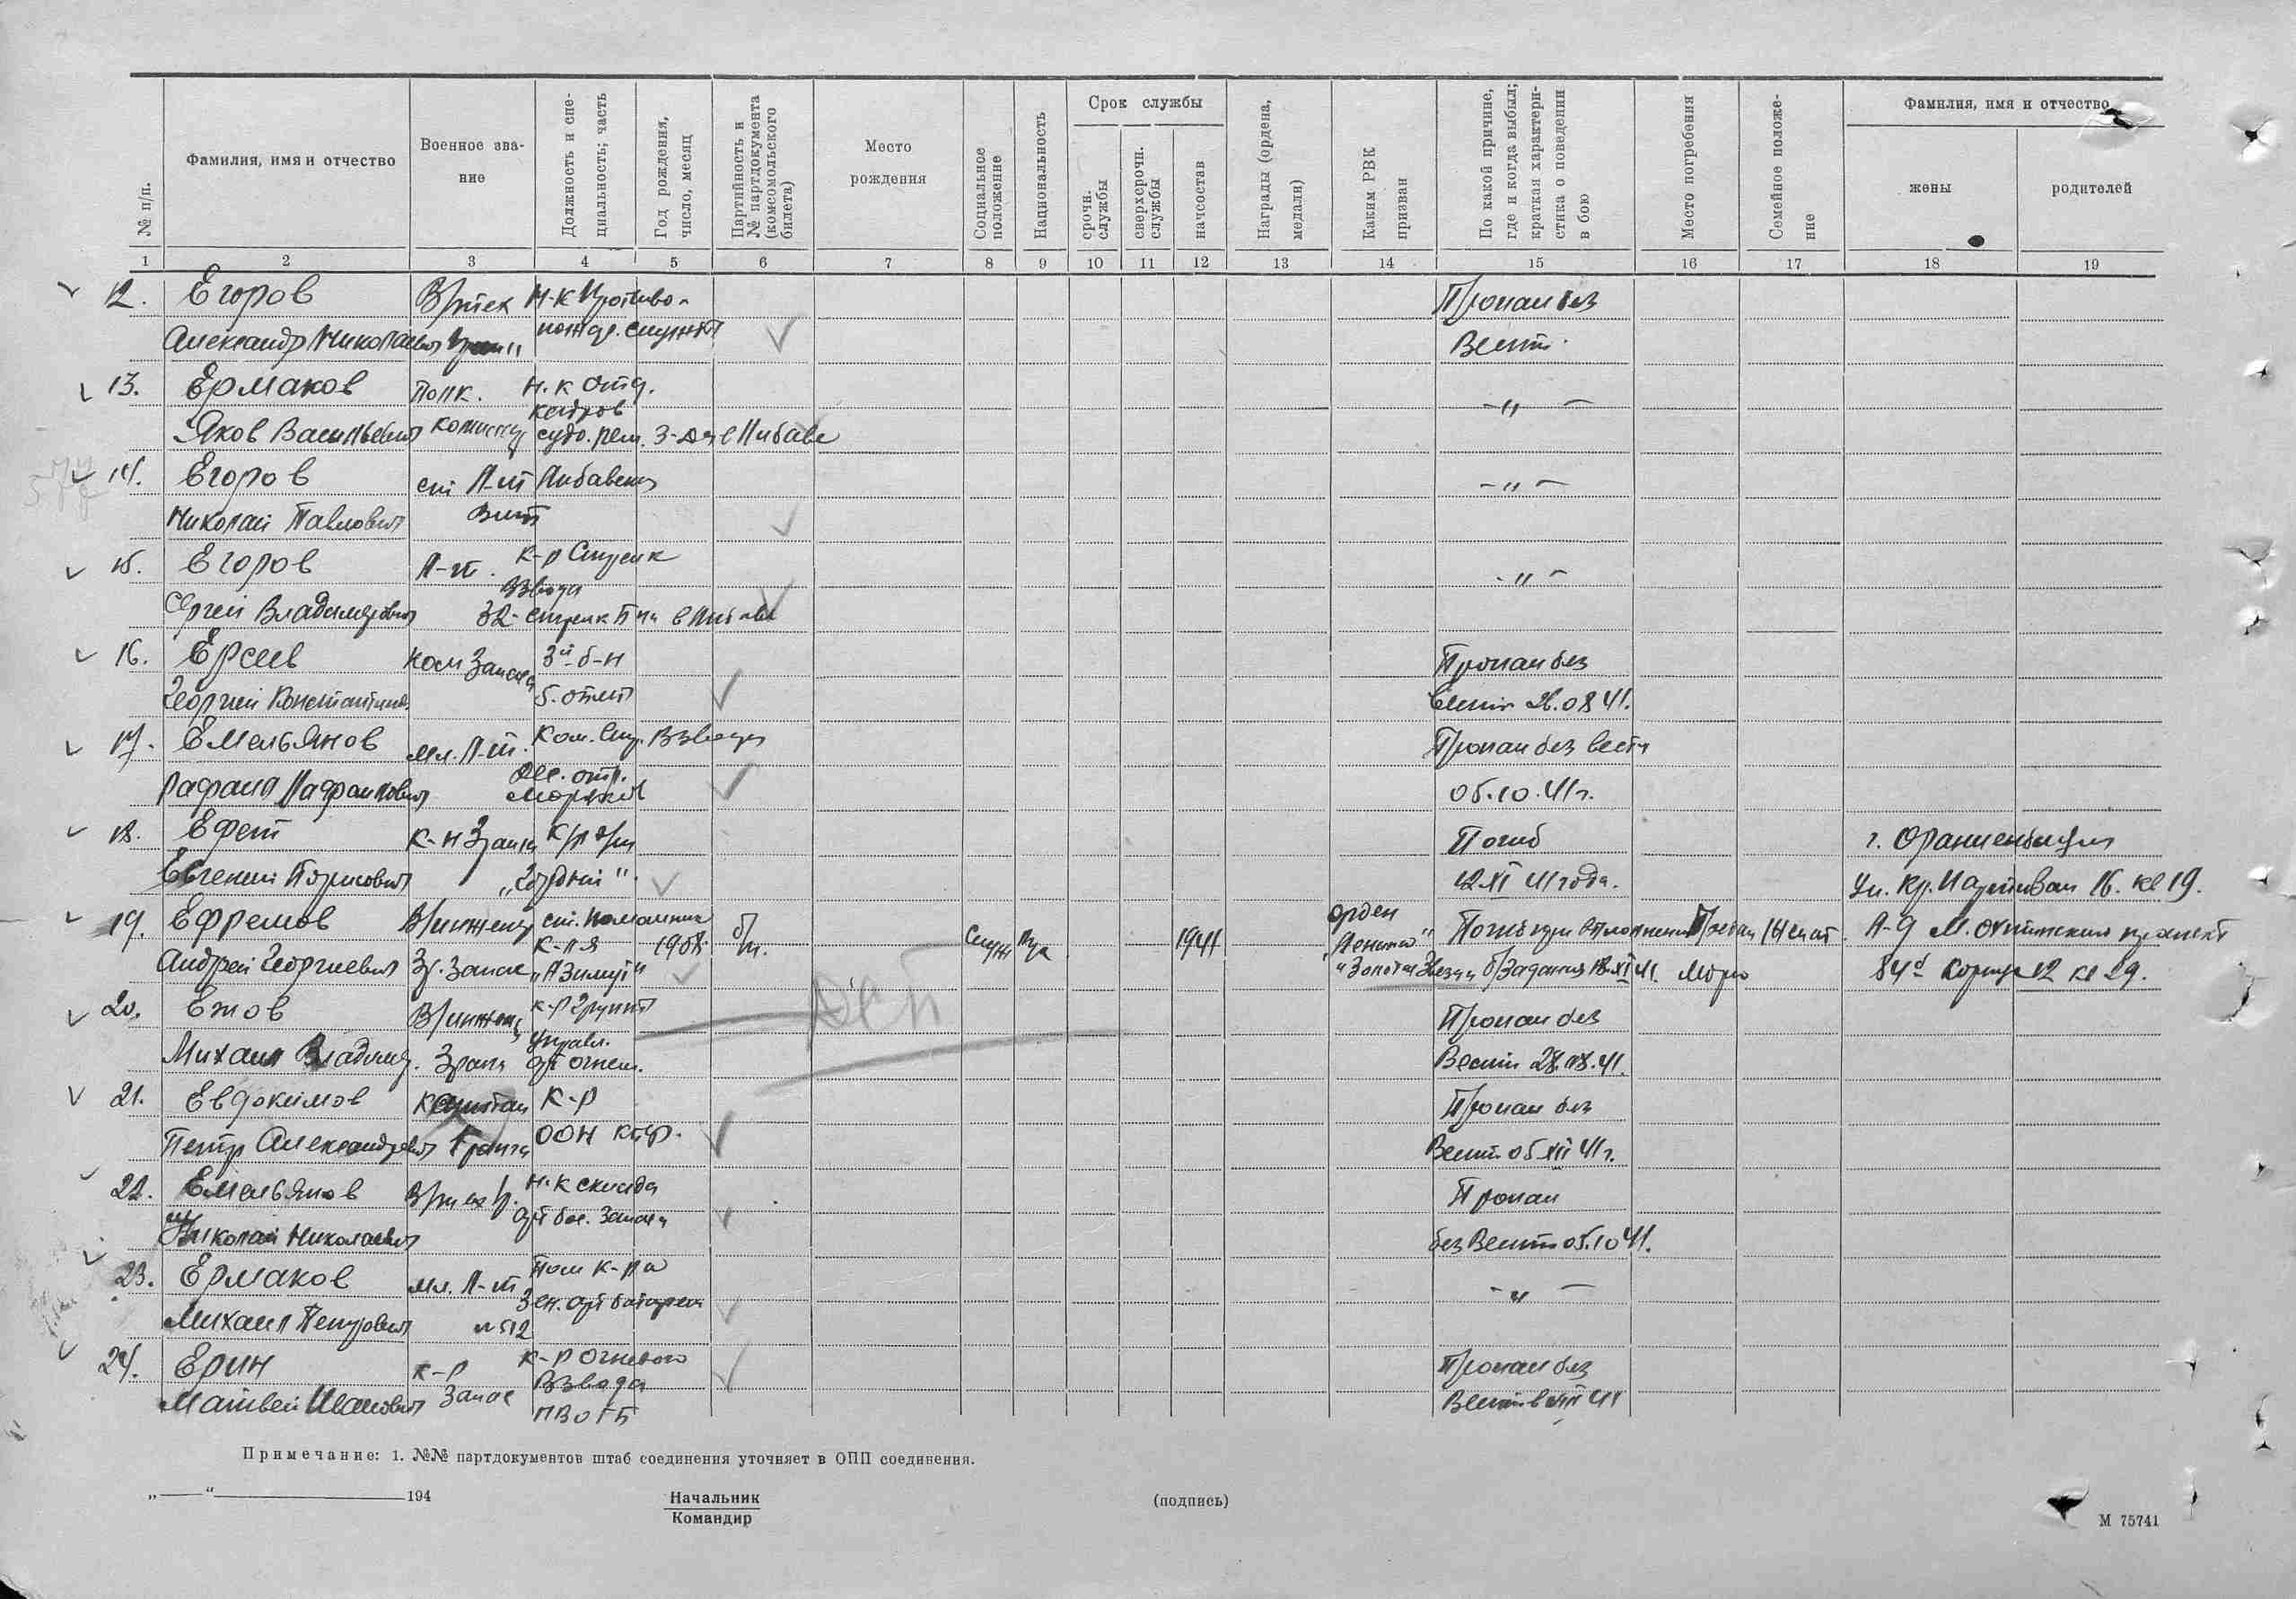 № п/п.
Фамилия, имя и отчество
Военное зва-
ние
Должность и спе-
циальность; часть
Год рождения,
число, месяц
Партийность и
№ партдокумента
(комсомольского
билета)
Место
рождения
Социальное
положение
Национальность
Срок службы
срочн.
службы
сверхсрочн.
службы
начсостав
Награды (ордена,
медали)
Каким РВК
призван
По какой причине,
где и когда выбыл;
краткая характери-
стика о поведении
в бою
Место погребения
Семейное положе-
ние
Фамилия, имя и отчество
жены
родителей
1 2 3 4 5 6 7 8 9 10 11 12 13 14 15 16 17 18 19
12. Егоров В/тех Н-к Противо- Пропал без
Александр Николаевич пожар. службы Вести
13. Ермаков Полк. Н-к отд. -"-
кадров
Яков Васильевич комиссар судо. рем. З-да в Либаве
14. Егоров ст Л-т Либавский -"-
Николай Павлович
15. Егоров Л-т. к-р Стрелк -"-
Взвода
Сергей Владимирович 32- стрелк Б-на в Либаве
16. Ерсев Ком Запаса 3й б-н Пропал без
Георгий Константинов. 5. отмп Вести 26.08 41.
17. Емельянов мл. Л-т. Ком. Стр. Взвода Пропал без вести
Рафаил Рафаилович отр. Моряков 05.10.41г.
18. Ефет К-н 3 ранга К/р э/м Погиб г. Ораниенбаум
Евгений Борисович "Гордый". 12 XI 41 года. Ул. Кр. 16. кв 19.
19. Ефремов В/инженер ст. помощник б/п. орден Погиб при выполнении
Андрей Георгиевич 3р. Запас к-ля "Азимут" 1908 Служ 1941 "Ленина" "Золотая Звезда" б/задания 18.XI 41. Море
Л-д М. Охтинский проспект
84б Корпус 12 кв 29.
20. Ежов В/инжен к-р группы Пропал без
Михаил Владимир. 3 ранга управл. арт огнем. Вести 28.08.41.
21. Евдокимов Капитан К-р Пропал без
Петр Александрович 1 ранга ООН КБФ. Вести 05 XII 41г.
22. Емельянов Н-к склада Пропал
Николай Николаевич арт бое. Запаса без Вести 05.10 41.
23. Ермаков мл. Л-т Пом К-ра -"-
Зен. арт батареи
Михаил Петрович № 512
24. Ерин К-р К-р Огневого Пропал без
Матвей Иванович Запас Взвода Вести в
ПВО ГБ
Примечание: 1. №№ партдокументов штаб соединения уточняет в ОПП соединения.
„ “ 194
Начальник
Командир
(подпись)
М 75741